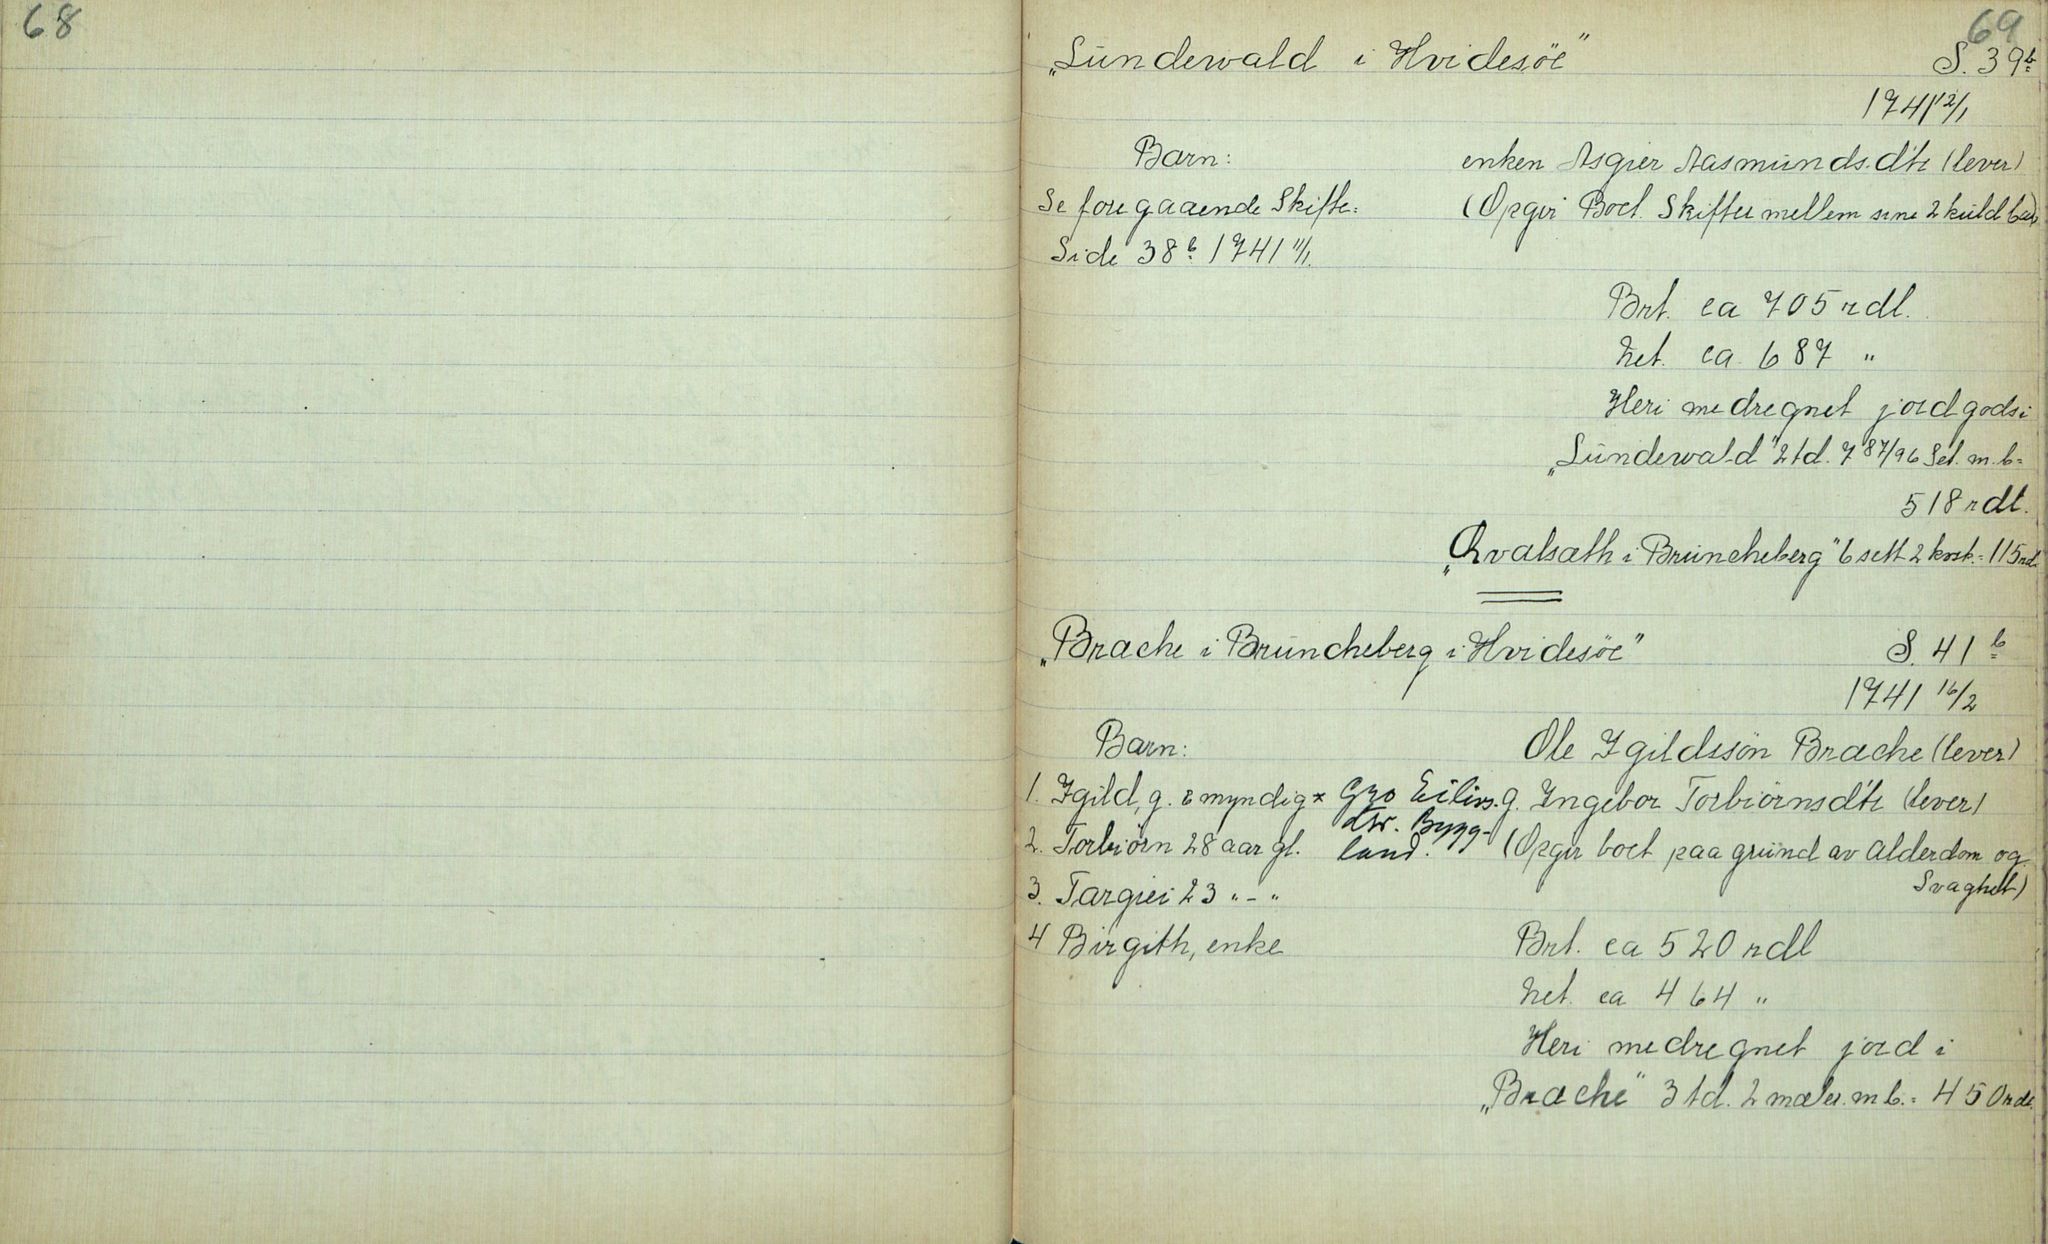 68
69
„Lündewald i Hvidesöe" S. 39b
1741 12/1
Barn: enken Asgier Aasmünds.dtr (lever)
Se foregaaende Skifte: (Opgir Boet. Skifter mellem sine 2 küld barn)
Side 38b 1741 11/1.
Brt. ca 705 rdl.
Net. ca. 687 "
Heri medregnet jordgods i
„Lündewald" 2 td. 7 87/96 Set. m.b =
518 rdl.
„Qvalsæth i Brüncheberg" 6 sett 2 kark. = 115 rdl.
„Brache i Brüncheberg i Hvidesöe" S. 41b
1741 16/2
Barn: Ole Igildssön Brache (lever)
1. Igild, g. & myndig x Gro Eilivs. g. Ingebor Torbiörnsdtr (lever)
dtr. Bygg-
2. Torbiörn 28 aar gl. land. (Opgir boet paa gründ av Alderdom og
3. Targiei 23 " - " Svaghet)
4 Birgith, enke Brt. ca 520 rdl
Net. ca 464 "
Heri medregnet jord i
„Brache" 3 td. 2 mæler. m b. = 450 rdl.